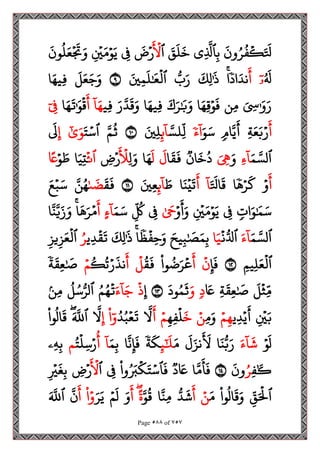 لَتَكۡفُرُونَ بِٱلَّذِي خَلَقَ ٱلۡأَرۡضَ فِي يَوۡمَيۡنِ وَتَجۡعَلُونَ
لَهُۥٓ أَندَادٗاۚ ذَٰلِكَ رَبُّ ٱلۡعَٰلَمِينَ ٩ وَجَعَلَ فِيهَا
رَوَٰسِيَ مِن فَوۡقِهَا وَبَٰرَكَ فِيهَا وَقَدَّرَ فِيهَآ أَقۡوَٰتَهَا فِيٓ
أَرۡبَعَةِ أَيَّامٖ سَوَآءٗ لِّلسَّآئِلِينَ ١٠ ثُمَّ ٱسۡتَوَىٰٓ إِلَى
ٱلسَّمَآءِ وَهِيَ دُخَانٞ فَقَالَ لَهَا وَلِلۡأَرۡضِ ٱئۡتِيَا طَوۡعًا
أَوۡ كَرۡهٗا قَالَتَآ أَتَيۡنَا طَآئِعِينَ ١١ فَقَضَىٰهُنَّ سَبۡعَ
سَمَٰوَاتٖ فِي يَوۡمَيۡنِ وَأَوۡحَىٰ فِي كُلِّ سَمَآءٍ أَمۡرَهَاۚ وَزَيَّنَّا
ٱلسَّمَآءَ ٱلدُّنۡيَا بِمَصَٰبِيحَ وَحِفۡظٗاۚ ذَٰلِكَ تَقۡدِيرُ ٱلۡعَزِيزِ
ٱلۡعَلِيمِ ١٢ فَإِنۡ أَعۡرَضُواْ فَقُلۡ أَنذَرۡتُكُمۡ صَٰعِقَةٗ
مِّثۡلَ صَٰعِقَةِ عَادٖ وَثَمُودَ ١٣ إِذۡ جَآءَتۡهُمُ ٱلرُّسُلُ مِنۢ
بَيۡنِ أَيۡدِيهِمۡ وَمِنۡ خَلۡفِهِمۡ أَلَّا تَعۡبُدُوٓاْ إِلَّا ٱللَّهَۖ قَالُواْ
لَوۡ شَآءَ رَبُّنَا لَأَنزَلَ مَلَٰٓئِكَةٗ فَإِنَّا بِمَآ أُرۡسِلۡتُم بِهِۦ
كَٰفِرُونَ ١٤ فَأَمَّا عَادٞ فَٱسۡتَكۡبَرُواْ فِي ٱلۡأَرۡضِ بِغَيۡرِ
ٱلۡحَقِّ وَقَالُواْ مَنۡ أَشَدُّ مِنَّا قُوَّةًۖ أَوَلَمۡ يَرَوۡاْ أَنَّ ٱللَّهَ
Page ٥٨٨ of ٧٥٧